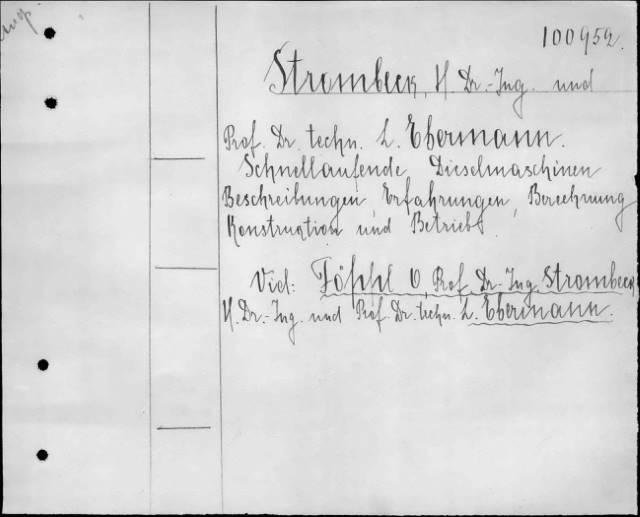 100952.
Strombeck, H. Dr.-Ing. und
Prof. Dr. techn. L. Ebermann.
Schnellaufende Dieselmaschinen
Beschreibungen, Erfahrungen, Berechnung
Konstruktion und Betrieb
Vid: Föppl O, Prof. Dr-Ing, Strombeck
H. Dr.-Ing. und Prof. Dr. techn. L. Ebermann.